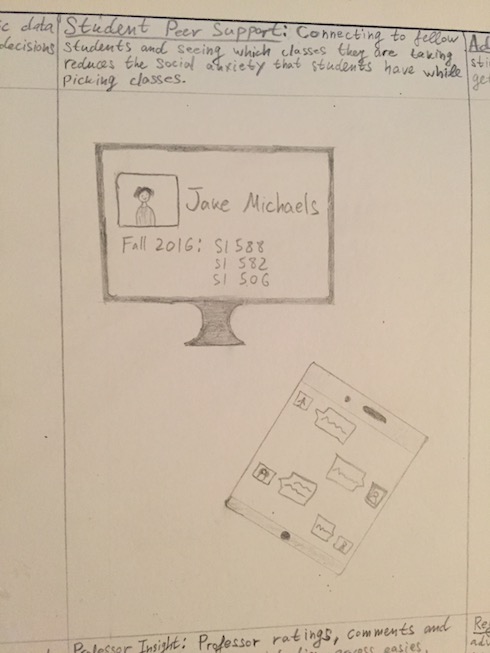 ic data
decisions
Student Peer Support: Connecting to fellow
students and seeing which classes they are taking
reduces the social anxiety that students have while
picking classes.
Ad
sti
ge
Jake Michaels
Fall 2016: SI 588
SI 582
SI 506
Professor Insight: Professor ratings, comments and
across easies.
Re
adi